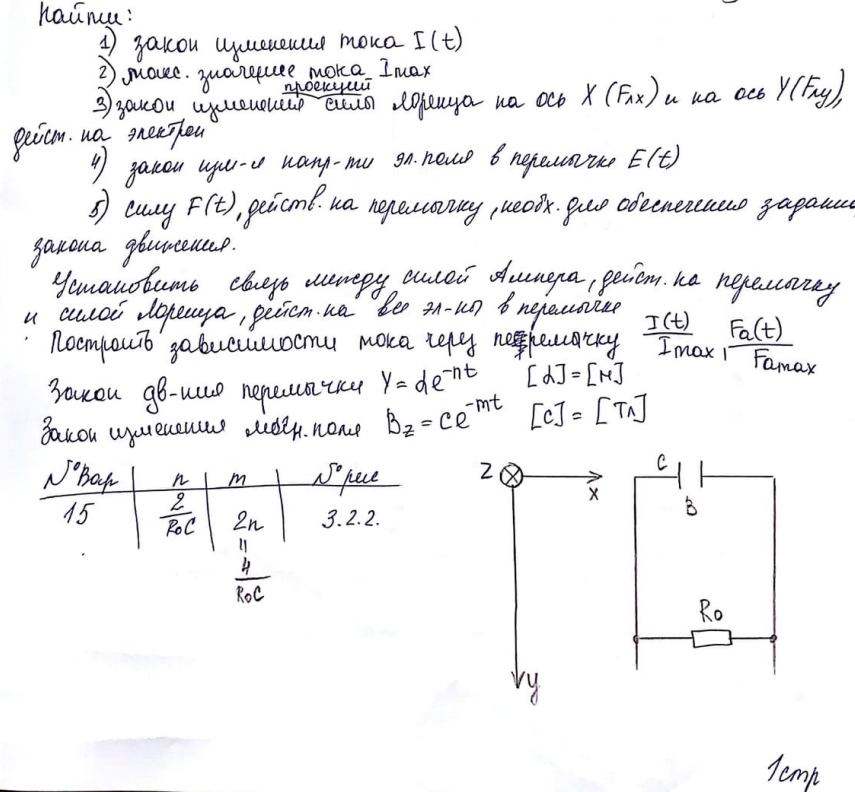 Найти:
1) закон изменения тока I(t)
2) макс. значение тока Imax
проекций
3) закон изменения силы Лоренца на ось X (Fлх) и на ось Y (Fлу),
дейст. на электрон
4) закон изм-я напр-ти эл. поля в перемычке E(t)
5) силу F(t), действ. на перемычку, необх. для обеспечения
закона движения.
Установить связь между силой Ампера, дейст. на перемычку
и силой Лоренца, дейст. на все эл-ны в перемычке
Построить зависимости тока через перемычку I(t)/Imax, Fa(t)/Famax
Закон дв-ния перемычки Y = αe^-nt [α] = [м]
Закон изменения магн. поля Bz = ce^-mt [c] = [Тл]
N°Вар n m N°рис
15 2/R₀C 2n 3.2.2.
=
4/R₀C
Z X
Y
C
B
R₀
1стр